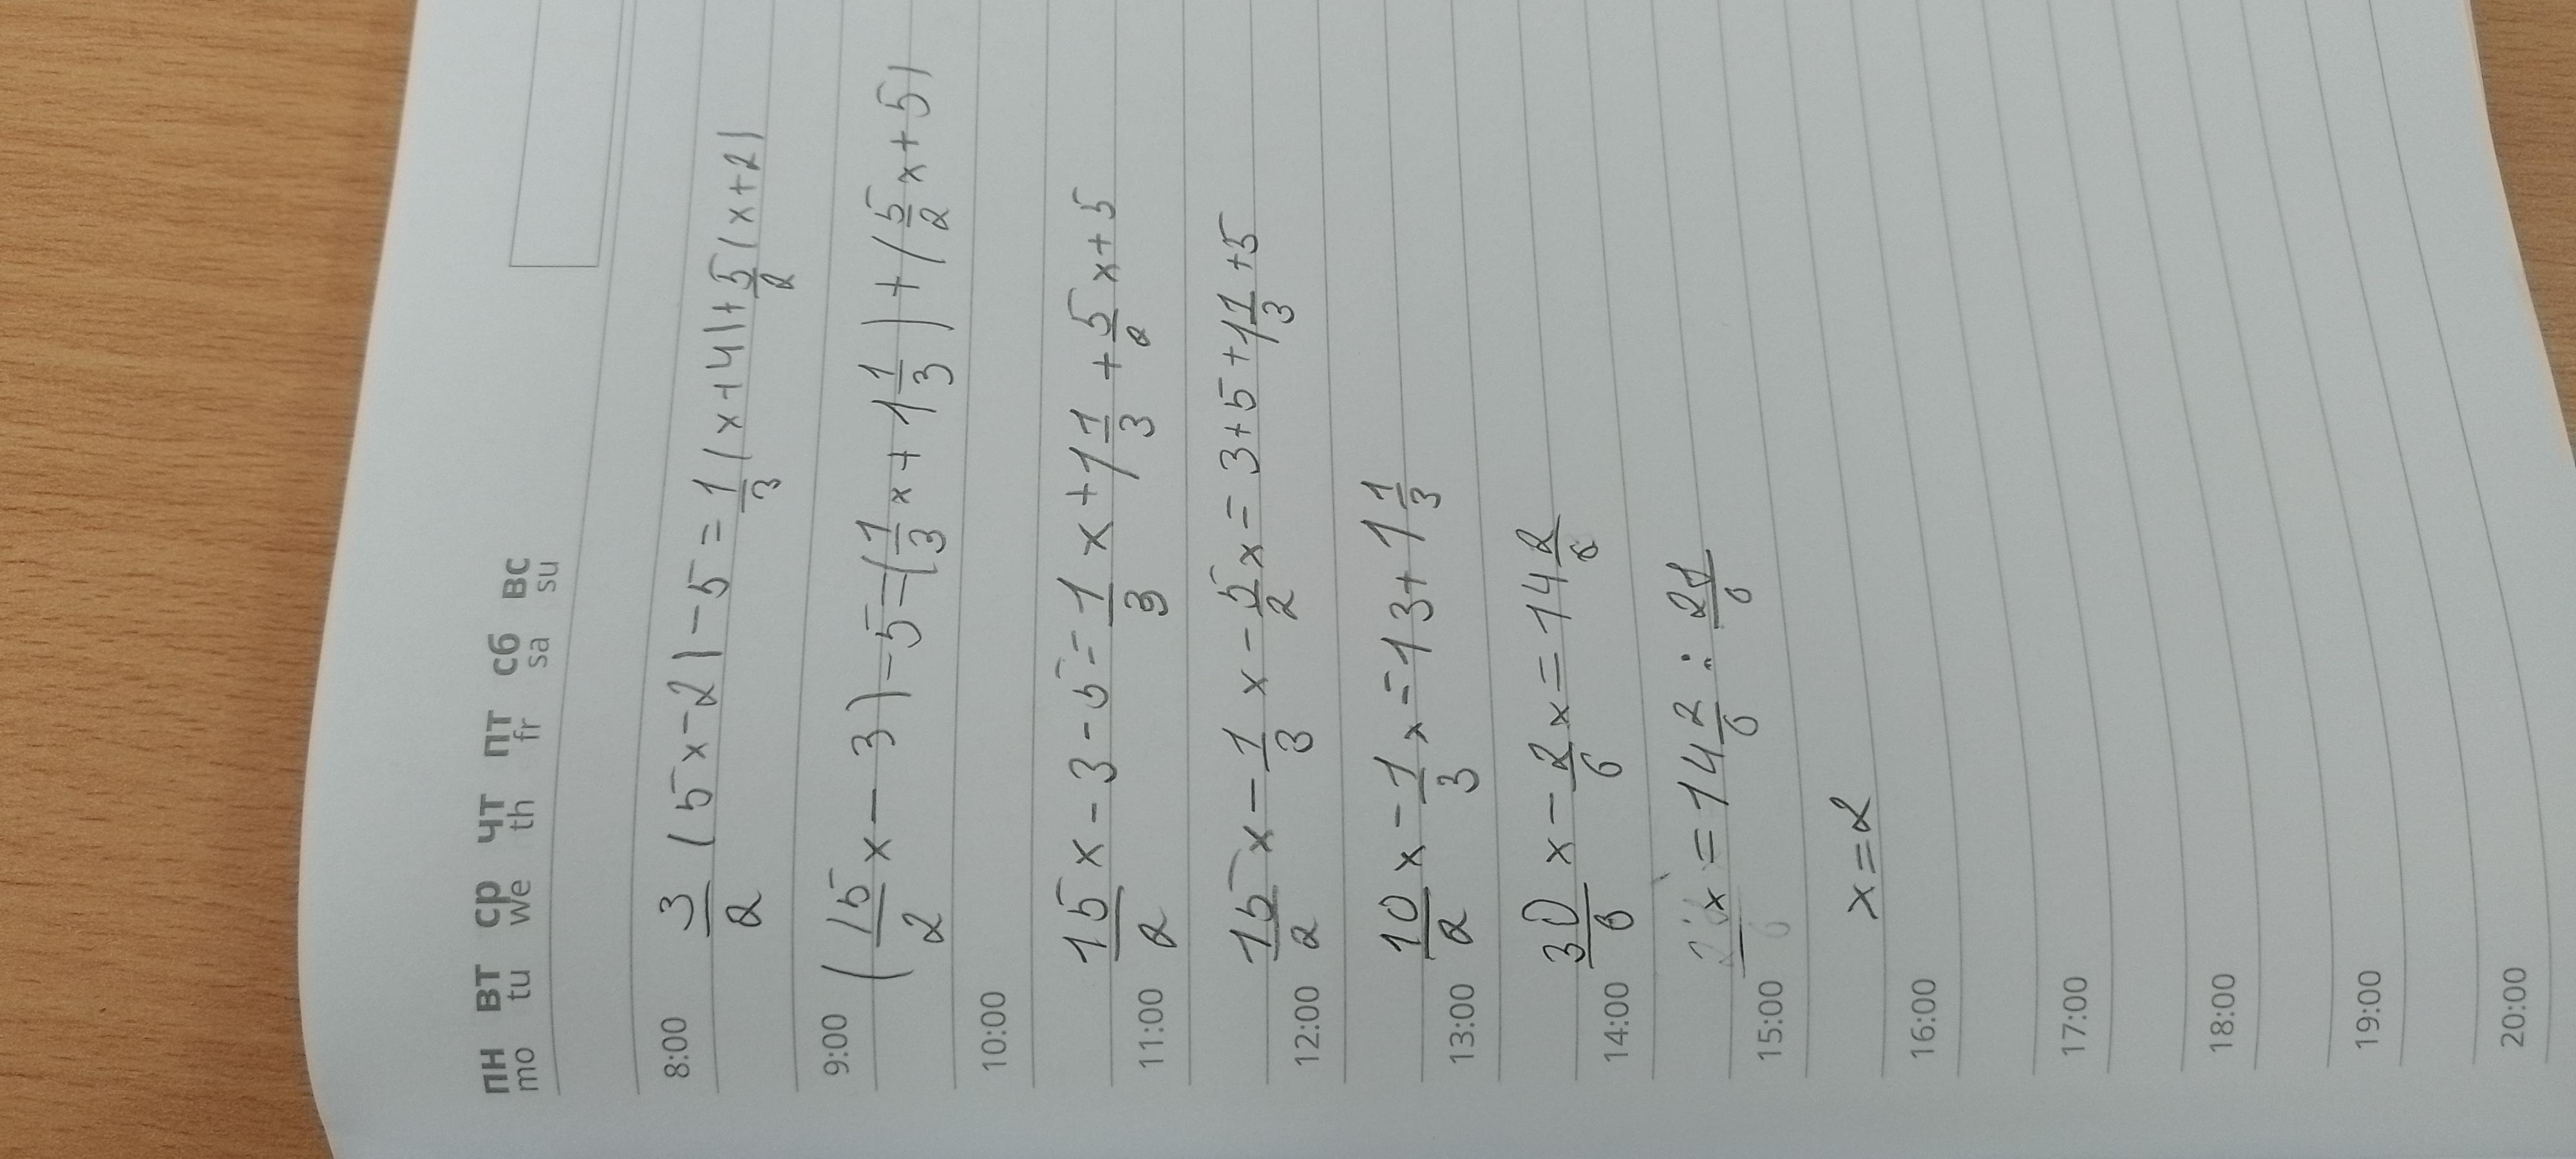 ПН ВТ СР ЧТ ПТ СБ ВС
mo tu we th fr sa su
8:00 3/2 (5x-2)-5=1/3(x+4)+5/2(x+2)
9:00 (15/2x-3)-5=(1/3x+1 1/3)+(5/2x+5)
10:00
11:00 15/2x-3-5=1/3x+1 1/3+5/2x+5
12:00 15/2x-1/3x-5/2x=3+5+1 1/3+5
13:00 10/2x-1/3x=13+1 1/3
14:00 30/6x-2/6x=14 2/6
15:00 x=14 2/6:
x=2
16:00
17:00
18:00
19:00
20:00